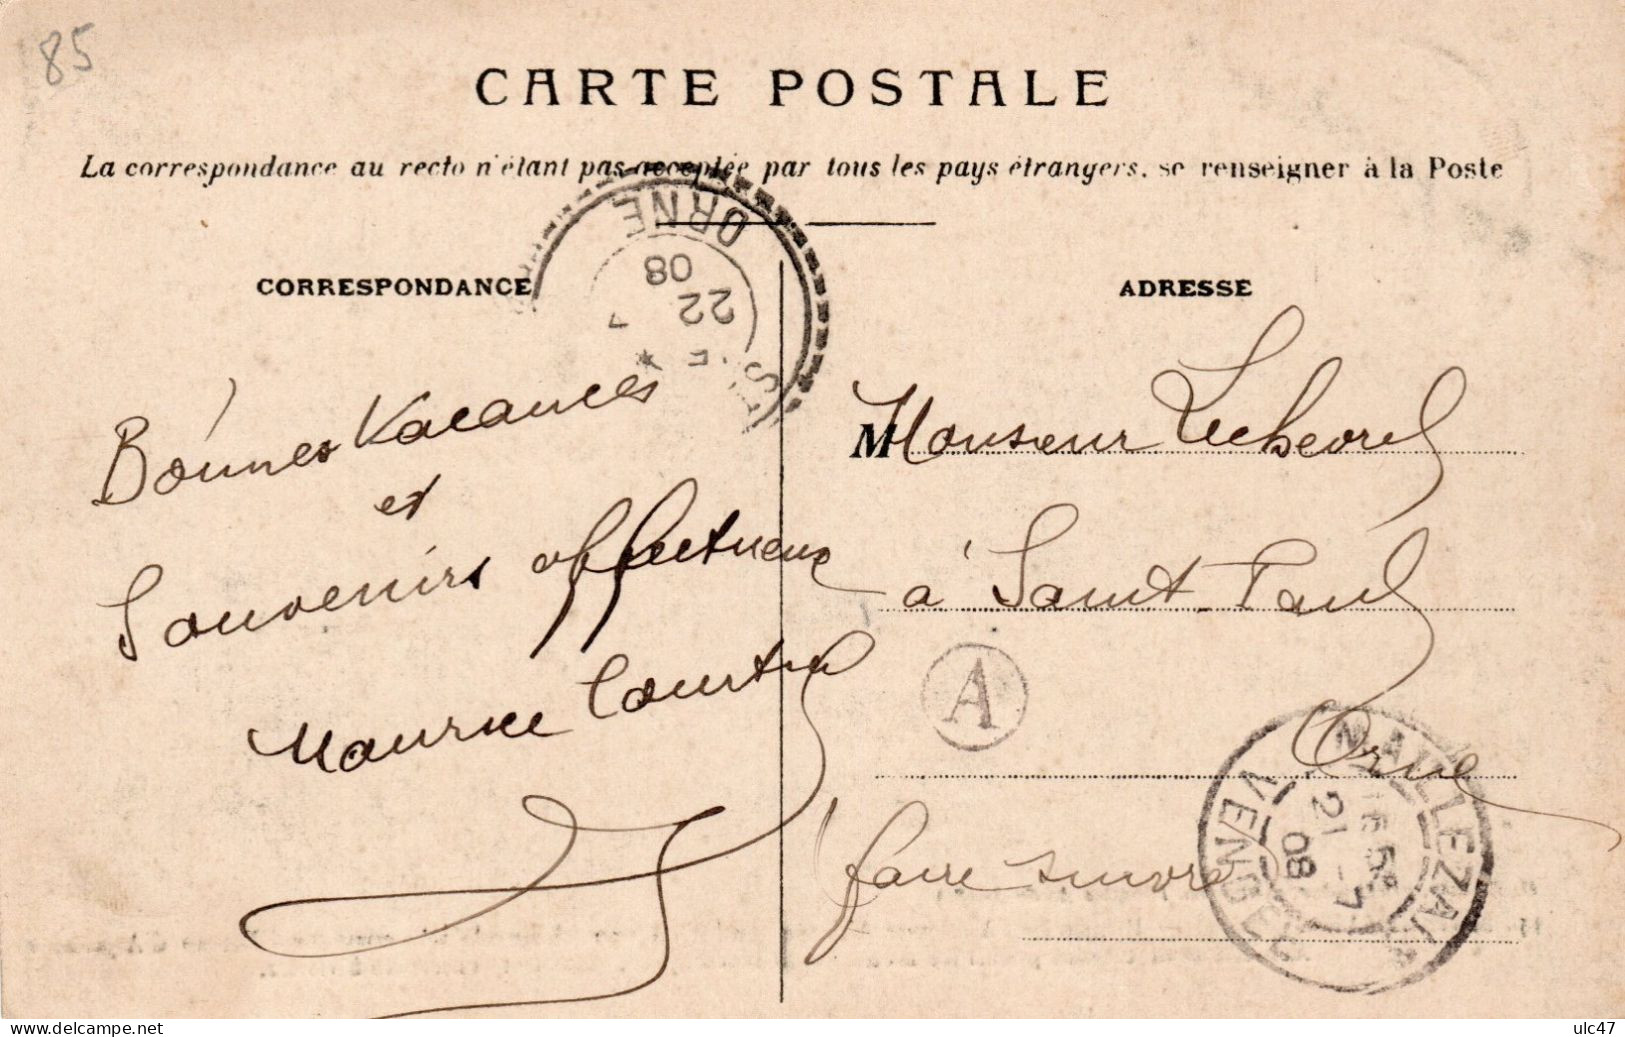 85
CARTE POSTALE
La correspondance au recto n'étant pas acceptée par tous les pays étrangers, se renseigner à la Poste
CORRESPONDANCE
ORNE
08
22
Bonnes Vacances
et
Souvenirs affectueux
Maurice
ADRESSE
M
Monsieur
à Saint-Paul
Orne
faire suivre
A
MAILLEZAIS
16 5
21 - 7
08
VENDÉE
www.delcampe.net
ulc47